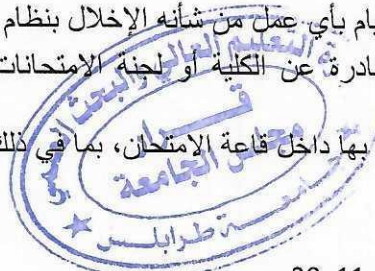 يام بأي عمل من شأنه الإخلال بنظام
ادرة عن الكلية أو لجنة الامتحانات
بها داخل قاعة الامتحان، بما في ذلك
التعليم العالي والبحث
قرار
مجلس الجامعة
جامعة طرابلس